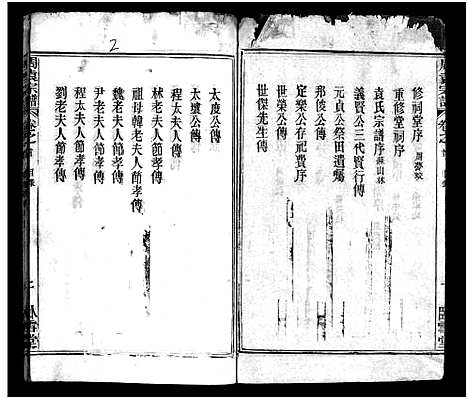 修祠堂序
重修堂祠序
袁氏宗譜序
義賢公三代賢行傳
元貞公祭田遺囑
邦俊公傳
定榮公存祀費序
世榮公傳
世傑先生傳
2
太度公傳
太瓊公傳
程太夫人傳
林老夫人節孝傳
祖母韓老夫人節孝傳
魏老夫人節孝傳
尹老夫人節孝傳
劉老夫人節孝傳
周袁宗譜
卷之首
目錄
臥雪堂